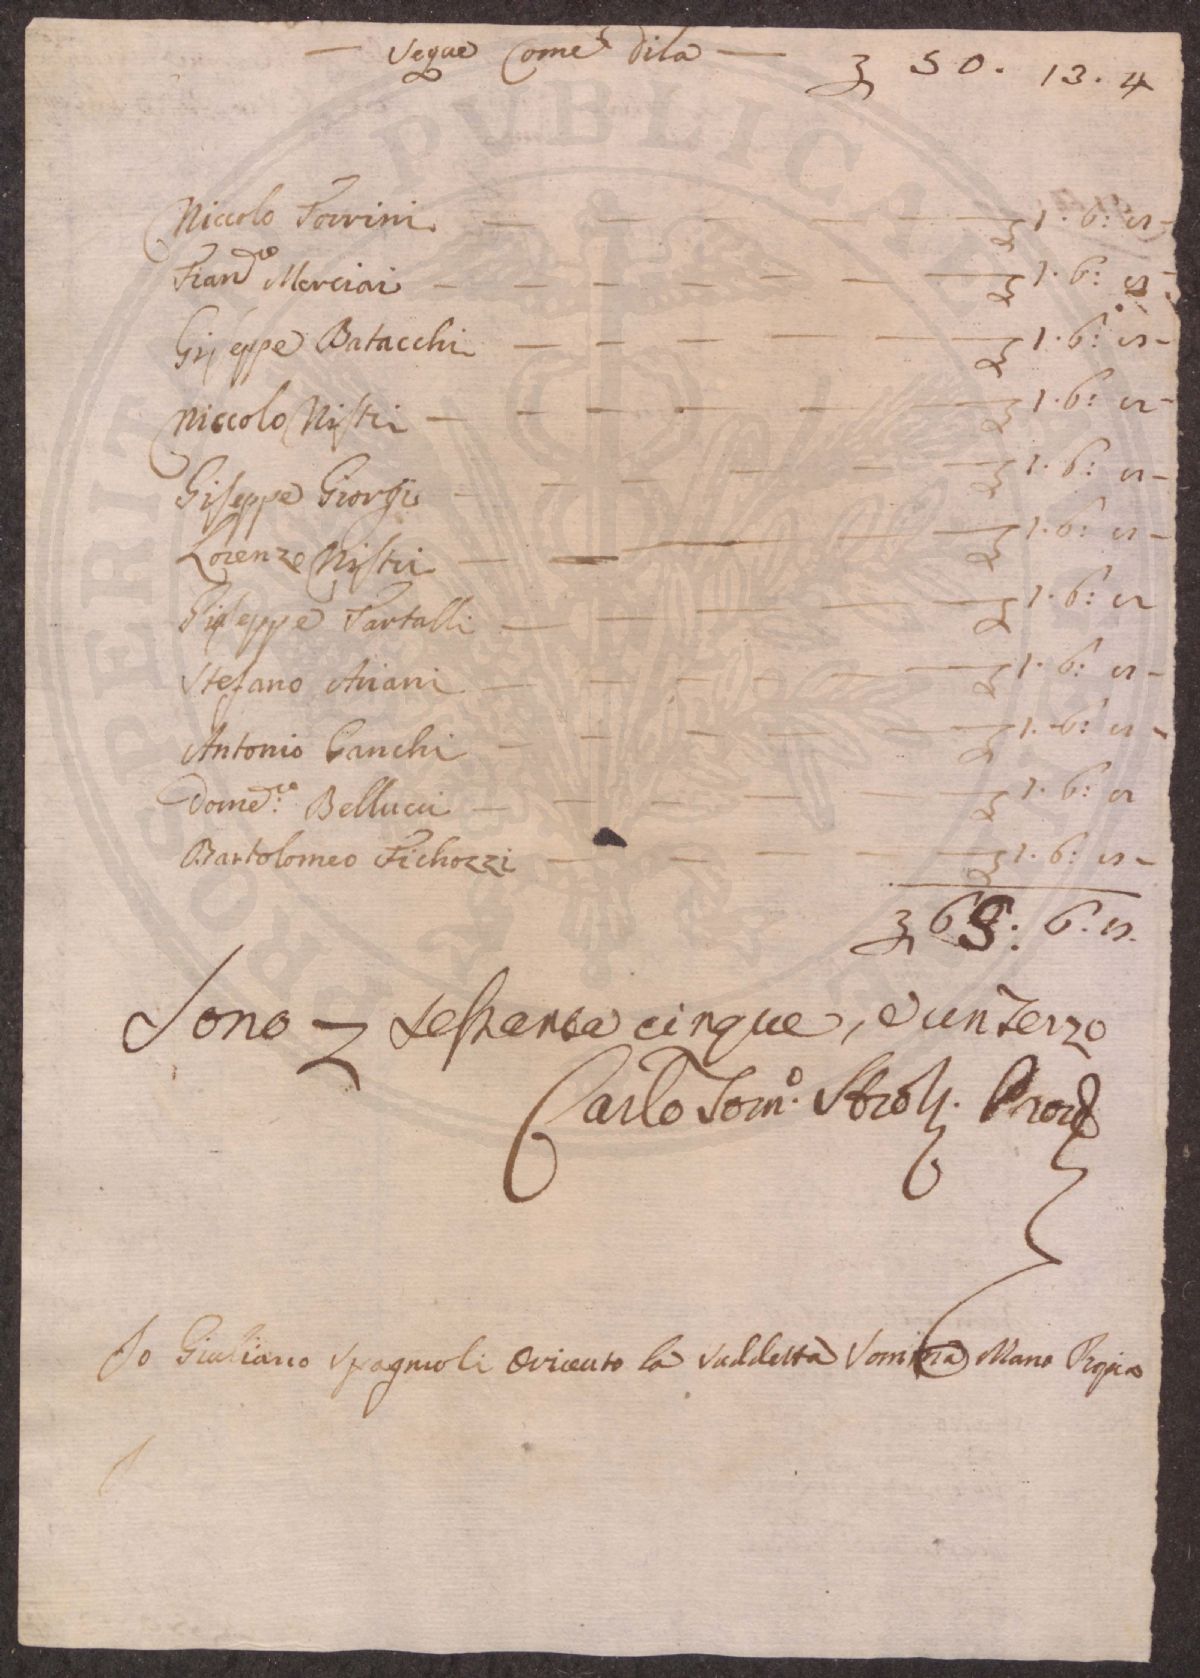 Segue Come dila 50. 13. 4
Niccolo Torrini 1. 6:
Fran.co Merciai 1. 6:
Giuseppe Batacchi 1. 6:
Niccolo Nisti 1. 6:
Giuseppe Giorgi 1. 6:
Lorenzo Nisti 1. 6:
Giuseppe Tartalli 1. 6:
Stefano Ariani 1. 6:
Antonio Banchi 1. 6:
Dome.co Bellucci 1. 6:
Bartolomeo Fichozzi 1. 6:
65: 6:
Sono sessanta cinque, e un Terzo
Carlo Tom.o
Io Giuliano Spagnuoli Oriceuto la suddetta Somma Mano Propia
PVBLICAE
PROSPERITATI